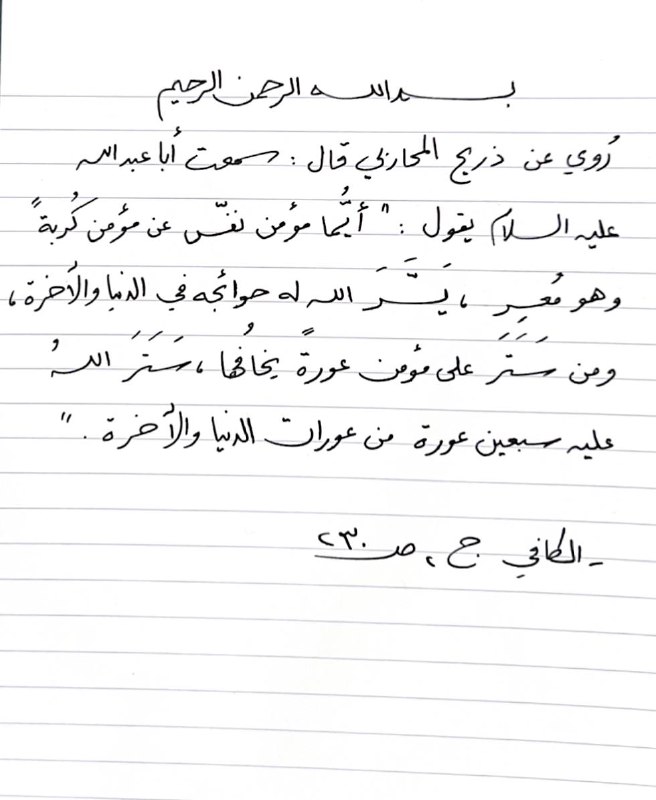 بسم الله الرحمن الرحيم
رُوي عن ذريح المحاربي قال : سمعت أبا عبد الله
عليه السلام يقول : " أيُّما مؤمن نفّس عن مؤمن كُربةً
وهو مُعسِر ، يَسَّرَ الله له حوائجه في الدنيا والأخرة ،
ومن سَتَرَ على مؤمن عورةً يخافُها ، سَتَرَ اللهُ
عليه سبعين عورة من عورات الدنيا والأخرة . "
- الكافي ج ٢ ص ٢٣٠